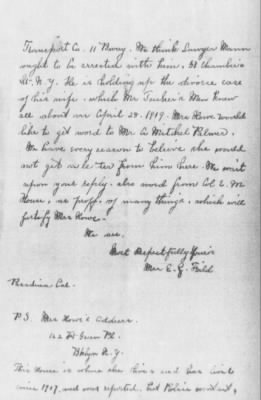 Transport Co. 11 Moore. We think Lawyer Mann
ought to be arrested with him, 51 Chambers
St. N.Y. He is holding up the divorce case
of his wife, which Mr. Man knew
all about on April 28. 1919. Mrs Howe would
like to get word to Mr. A Mitchel Palmer.
We have every reason to believe she would
not get a letter from him here. We wait
upon your reply. also word from Col E. M.
House, as proof, of many things, which will
fortify Mrs Howe.
We are,
Most Respectfully Yours
Mrs E. G. Field
Pasadena Cal.
P.S. Mrs Howe's address.
Pl.
Bklyn N.Y.
This House is where she lives and has lived
since 1907, and was reported, but Police